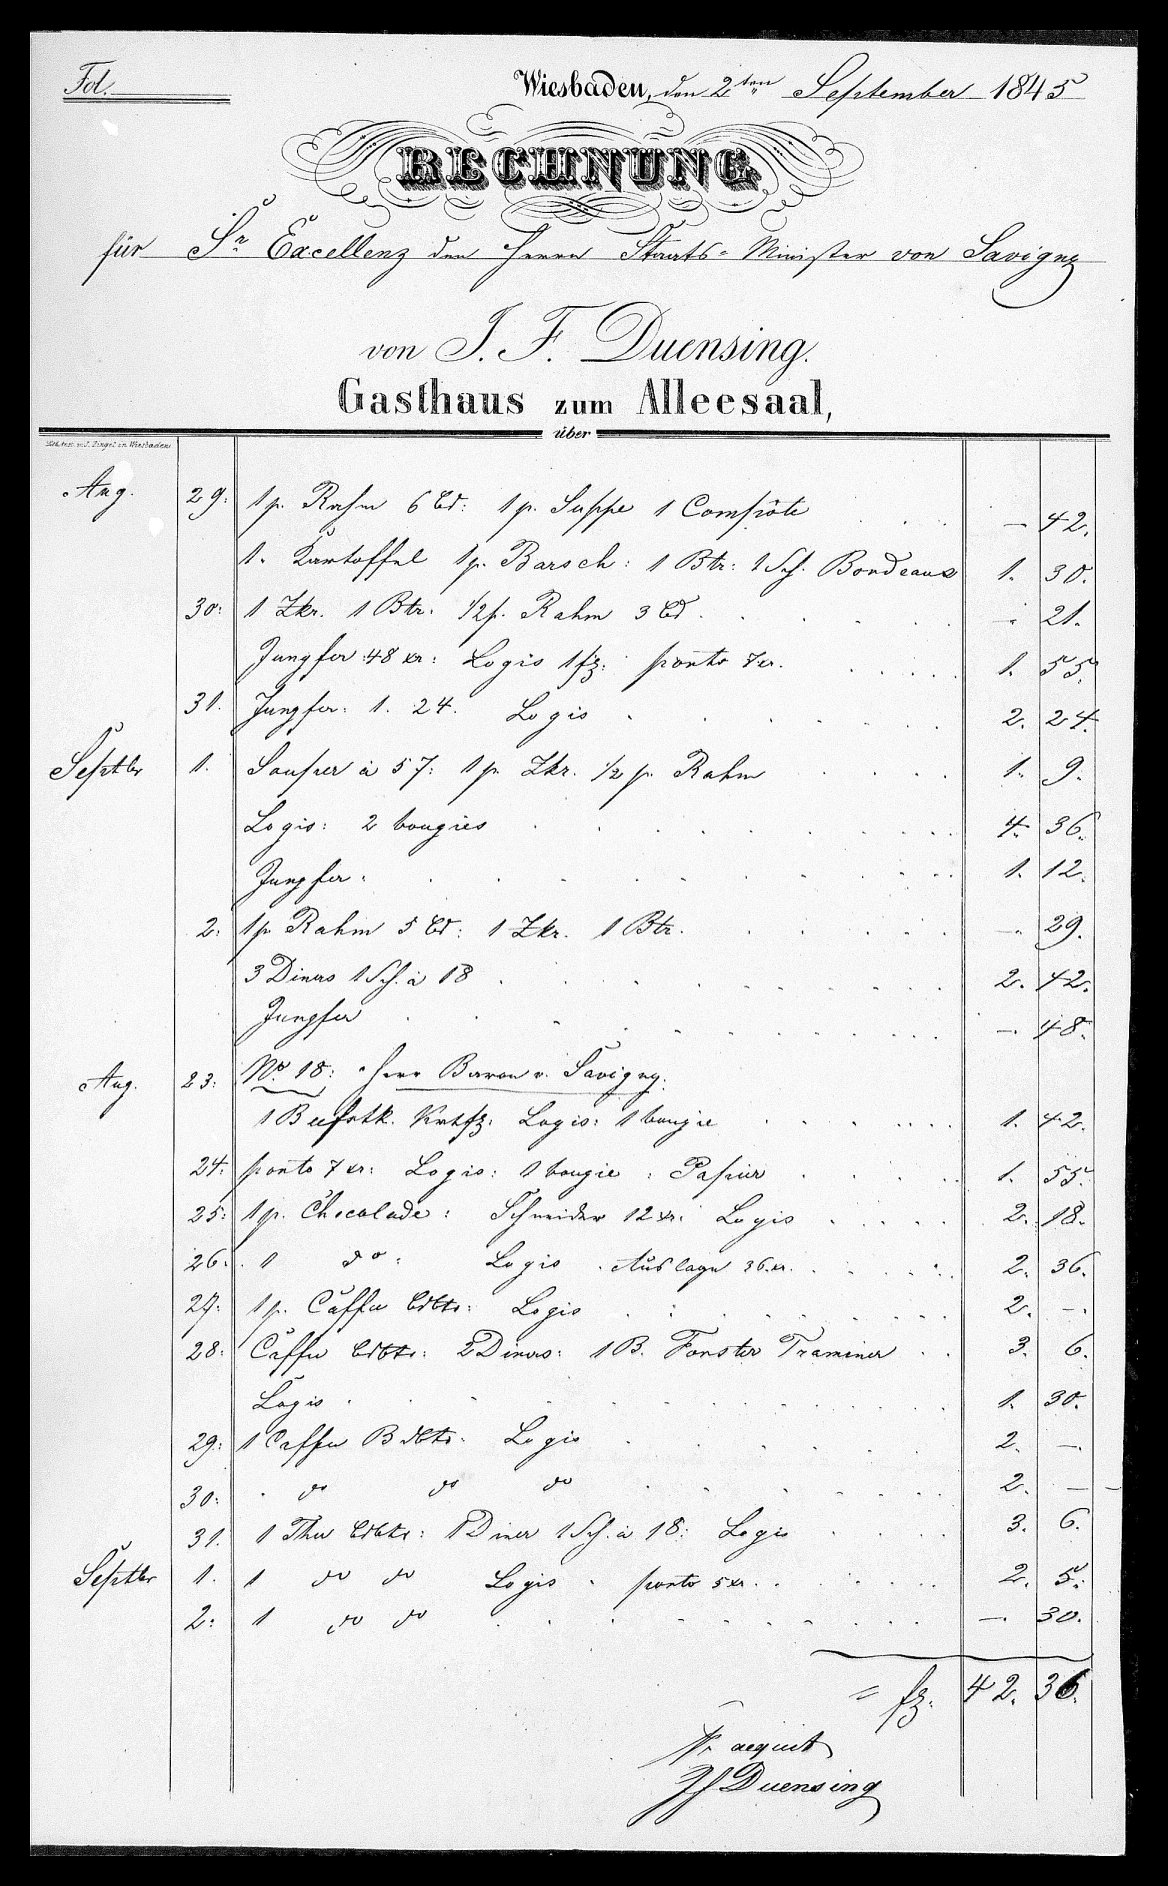 Fol.
Wiesbaden, den 2ten September 1845
RECHNUNG
für Sr Excellenz den Herrn Staats-Minister von Savigny
von J. F. Duensing.
Gasthaus zum Alleesaal,
über
Aug. 29: 1 p. Rahm 6 Bd: 1 p. Suppe 1 Compôte — 42.
1. Kartoffel 1 p. Barsch: 1 Btr: 1 Sch. Bordeaux 1. 30.
30: 1 Zkr. 1 Btr. 1/2 p. Rahm 3 Bd. — 21.
Jungfer 48 xr: Logis 1 fz. porto 7 xr. 1. 55.
31. Jungfer: 1. 24. Logis 2. 24.
Septbr 1. Souper à 57: 1 p. Zkr. 1/2 p. Rahm 1. 9.
Logis: 2 bougies 4. 36.
Jungfer. 1. 12.
2. 1 p Rahm 5 Bd: 1 Zkr. 1 Btr. — 29.
3 Diners 1 Sch. à 18 2. 42.
Jungfer — 48.
Aug. 23: No 18: Herr Baron v. Savigny.
1 Beefstk. Krtfz. Logis: 1 bougie 1. 42.
24: porto 7 xr: Logis: 1 bougie: Papier 1. 55.
25: 1 p. Chocolade: Schneider 12 xr: Logis 2. 18.
26. 1 do: Logis. Auslagen 36. xr. 2. 36.
27: 1 p. Caffee Bdbtr: Logis 2. —.
28: Caffee Bdbtr: 2 Diners: 1 B. Forster Traminer 3. 6.
Logis 1. 30.
29: 1 Caffee Bdbtr. Logis 2. —.
30: do do do 2. —
31. 1 Thee Bdbtr: 1 Diner 1 Sch. à 18: Logis 3. 6.
Septbr 1. 1 do do Logis. porto 5 xr. 2. 5.
2: 1 do do —. 30.
= fz. 42. 36.
Pr acquit
JF Duensing